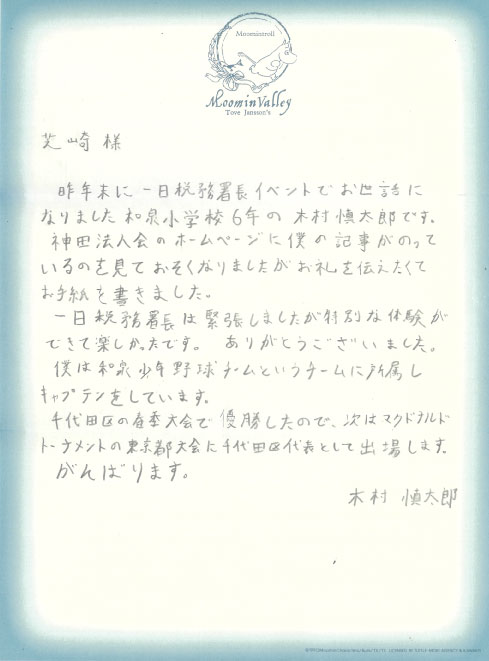 Moomintroll
Moomin Valley
Tove Jansson's
芝崎様
昨年末に一日税務署長イベントでお世話に
なりました和泉小学校6年の木村慎太郎です。
神田法人会のホームページに僕の記事がのって
いるのを見ておそくなりましたがお礼を伝えたくて
お手紙を書きました。
一日税務署長は緊張しましたが特別な体験が
できて楽しかったです。ありがとうございました。
僕は和泉少年野球チームというチームに所属し
キャプテンをしています。
千代田区の春季大会で優勝したので、次はマクドナルド
トーナメントの東京都大会に千代田区代表として出場します。
がんばります。
木村慎太郎